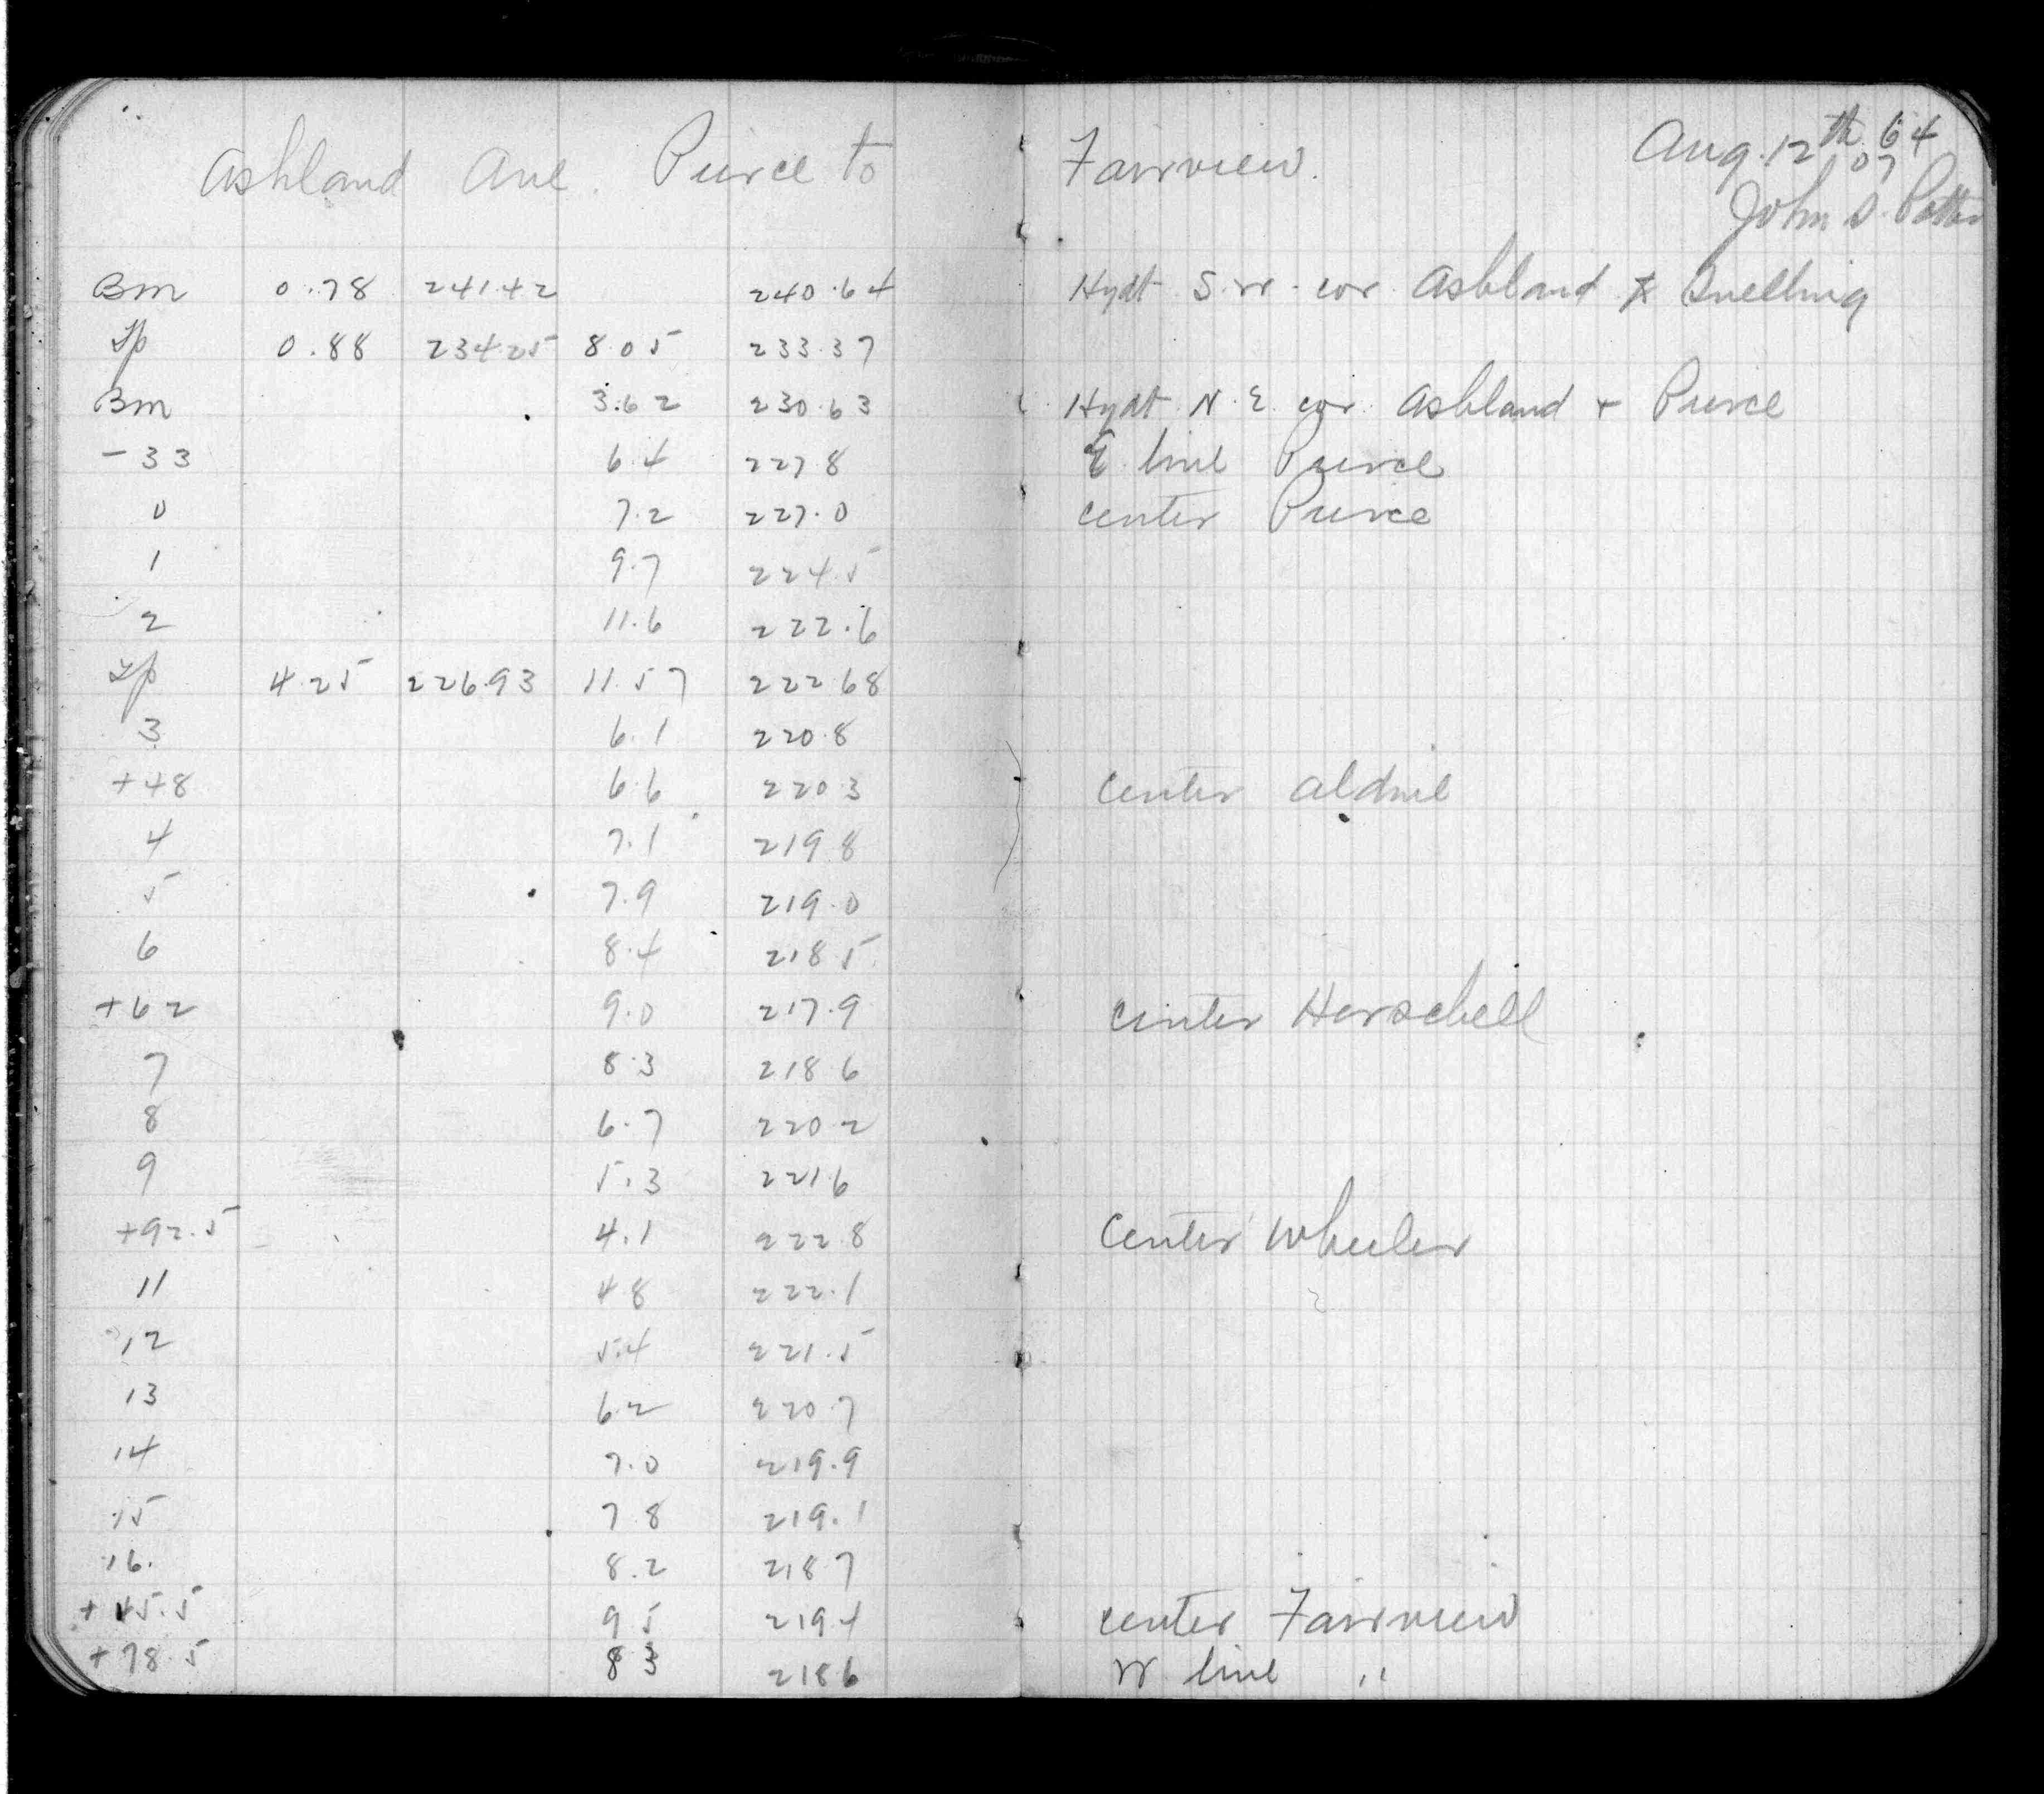 64
Ashland Ave. Pierce to Fairview. Aug. 12th 07
John S. Potter
Bm 0.78 241.42 240.64 Hydt S.W. cor. Ashland & Snelling
Tp 0.88 234.25 8.05 233.37
Bm 3.62 230.63 Hydt N.E. cor. Ashland + Pierce
-33 6.4 227.8 E line Pierce
0 7.2 227.0 center Pierce
1 9.7 224.5
2 11.6 222.6
Tp 4.25 226.93 11.57 222.68
3 6.1 220.8
+48 6.6 220.3 center Aldine
4 7.1 219.8
5 7.9 219.0
6 8.4 218.5
+62 9.0 217.9 center Herschell
7 8.3 218.6
8 6.7 220.2
9 5.3 221.6
+92.5 4.1 222.8 Center Wheeler
11 4.8 222.1
12 5.4 221.5
13 6.2 220.7
14 7.0 219.9
15 7.8 219.1
16. 8.2 218.7
+45.5 9.5 219.4 center Fairview
+78.5 8.3 218.6 W line "